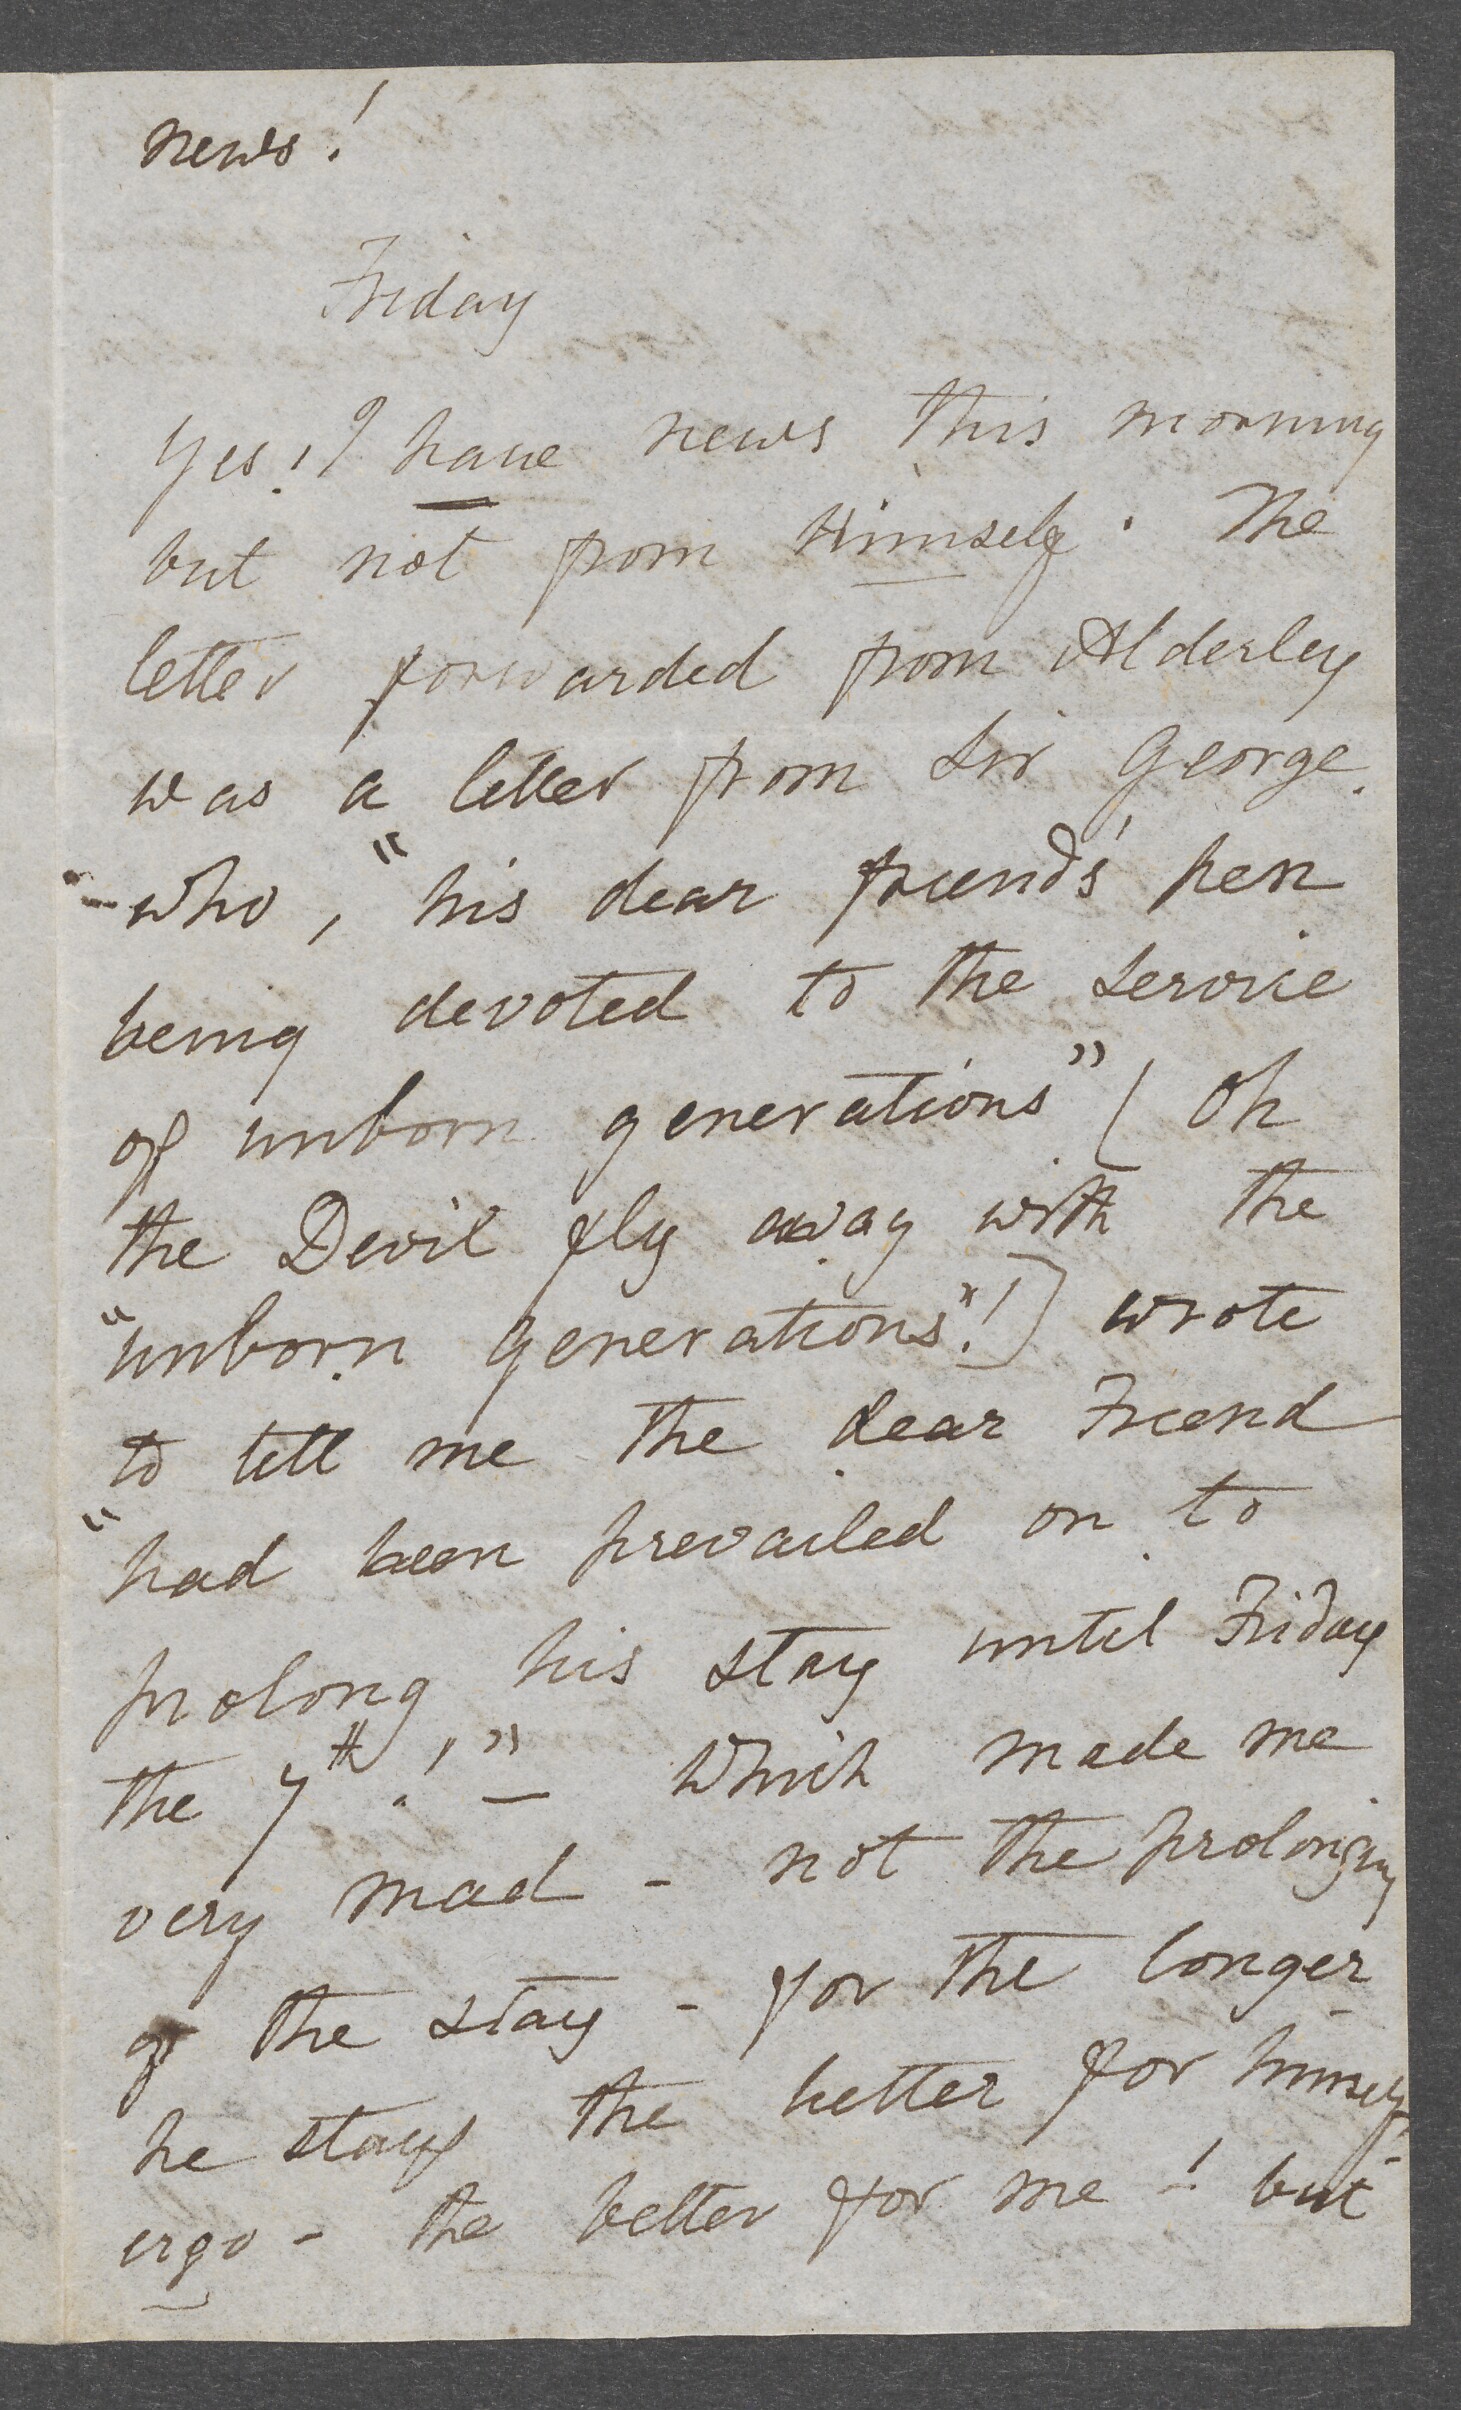 news!
Friday
Yes! I have news this morning
but not from Himself. The
letter forwarded from Alderley
was a letter from Sir George.
– who, "his dear friend's pen
being devoted to the service
of unborn generations" (Oh
the Devil fly away with the
"unborn generations"!) wrote
to tell me the dear Friend
"had been prevailed on to
prolong his stay until Friday
the 7th!" – Which made me
very mad – not the prolonging
of the stay – for the longer
he stays the better for himself –
ergo – the better for me –! but